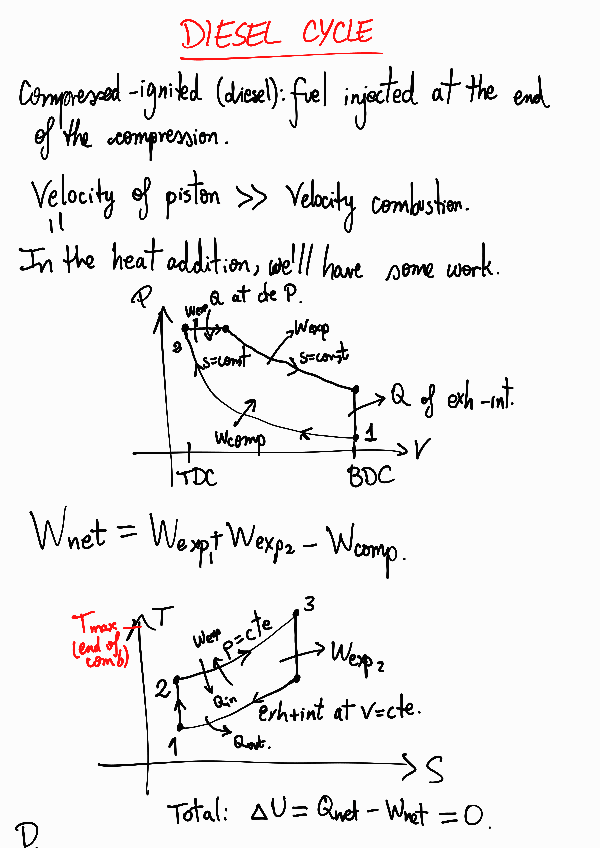 DIESEL CYCLE
Compressed-ignited (diesel): fuel injected at the end
of the compression.
Velocity of piston >> Velocity combustion.
In the heat addition, we'll have some work.
P
Wexp Q at cte P.
Wexp
2
s=const
s=const
Q of exh-int.
Wcomp
1
V
TDC
BDC
Wnet = Wexp1 + Wexp2 - Wcomp.
Tmax
(end of
comb)
T
3
Wexp
P=cte
Wexp2
2
Qin
exh+int at v=cte.
1
Qout.
S
Total: ΔU = Qnet - Wnet = 0.